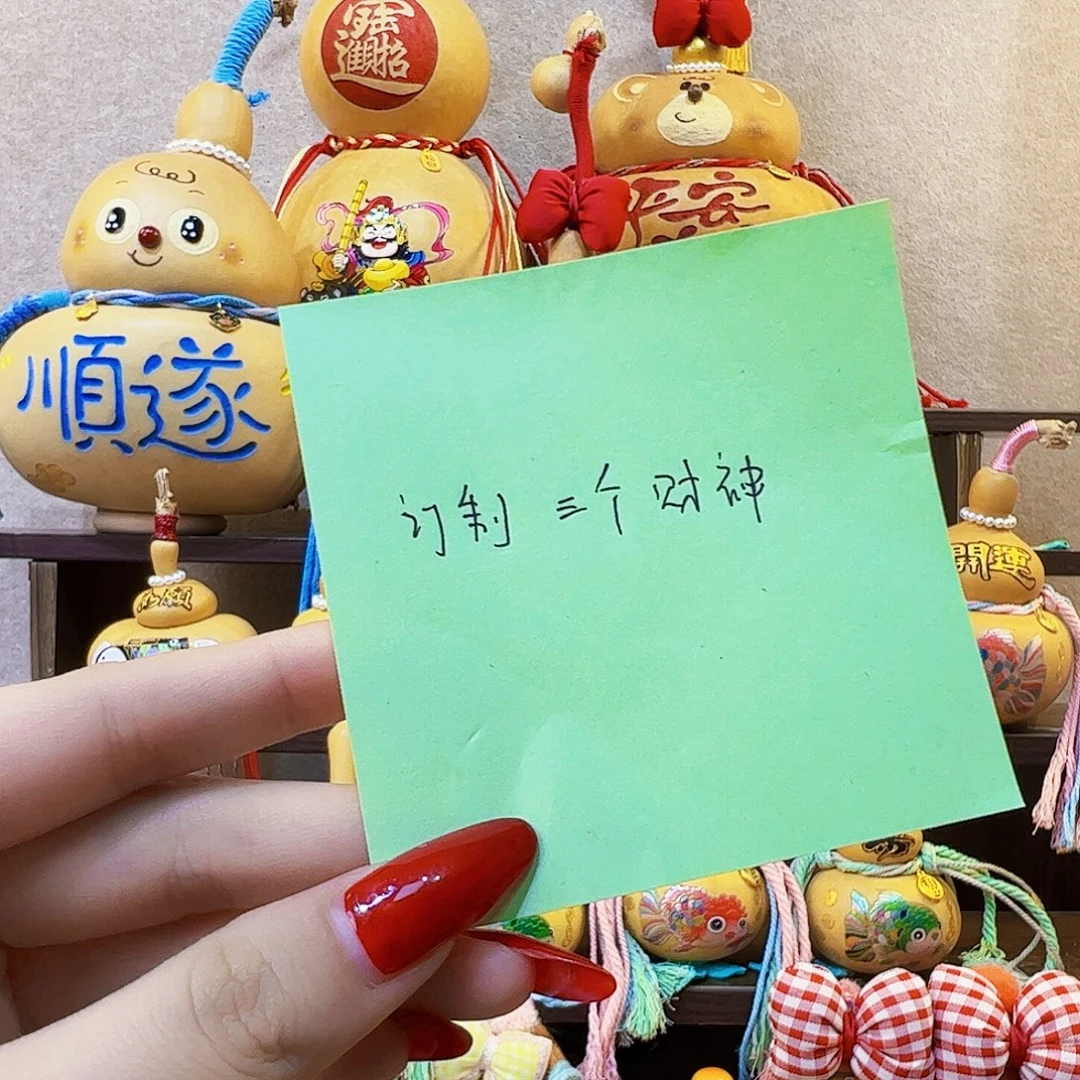 招財進寶
平安
順遂
订制 三个 财神
開運